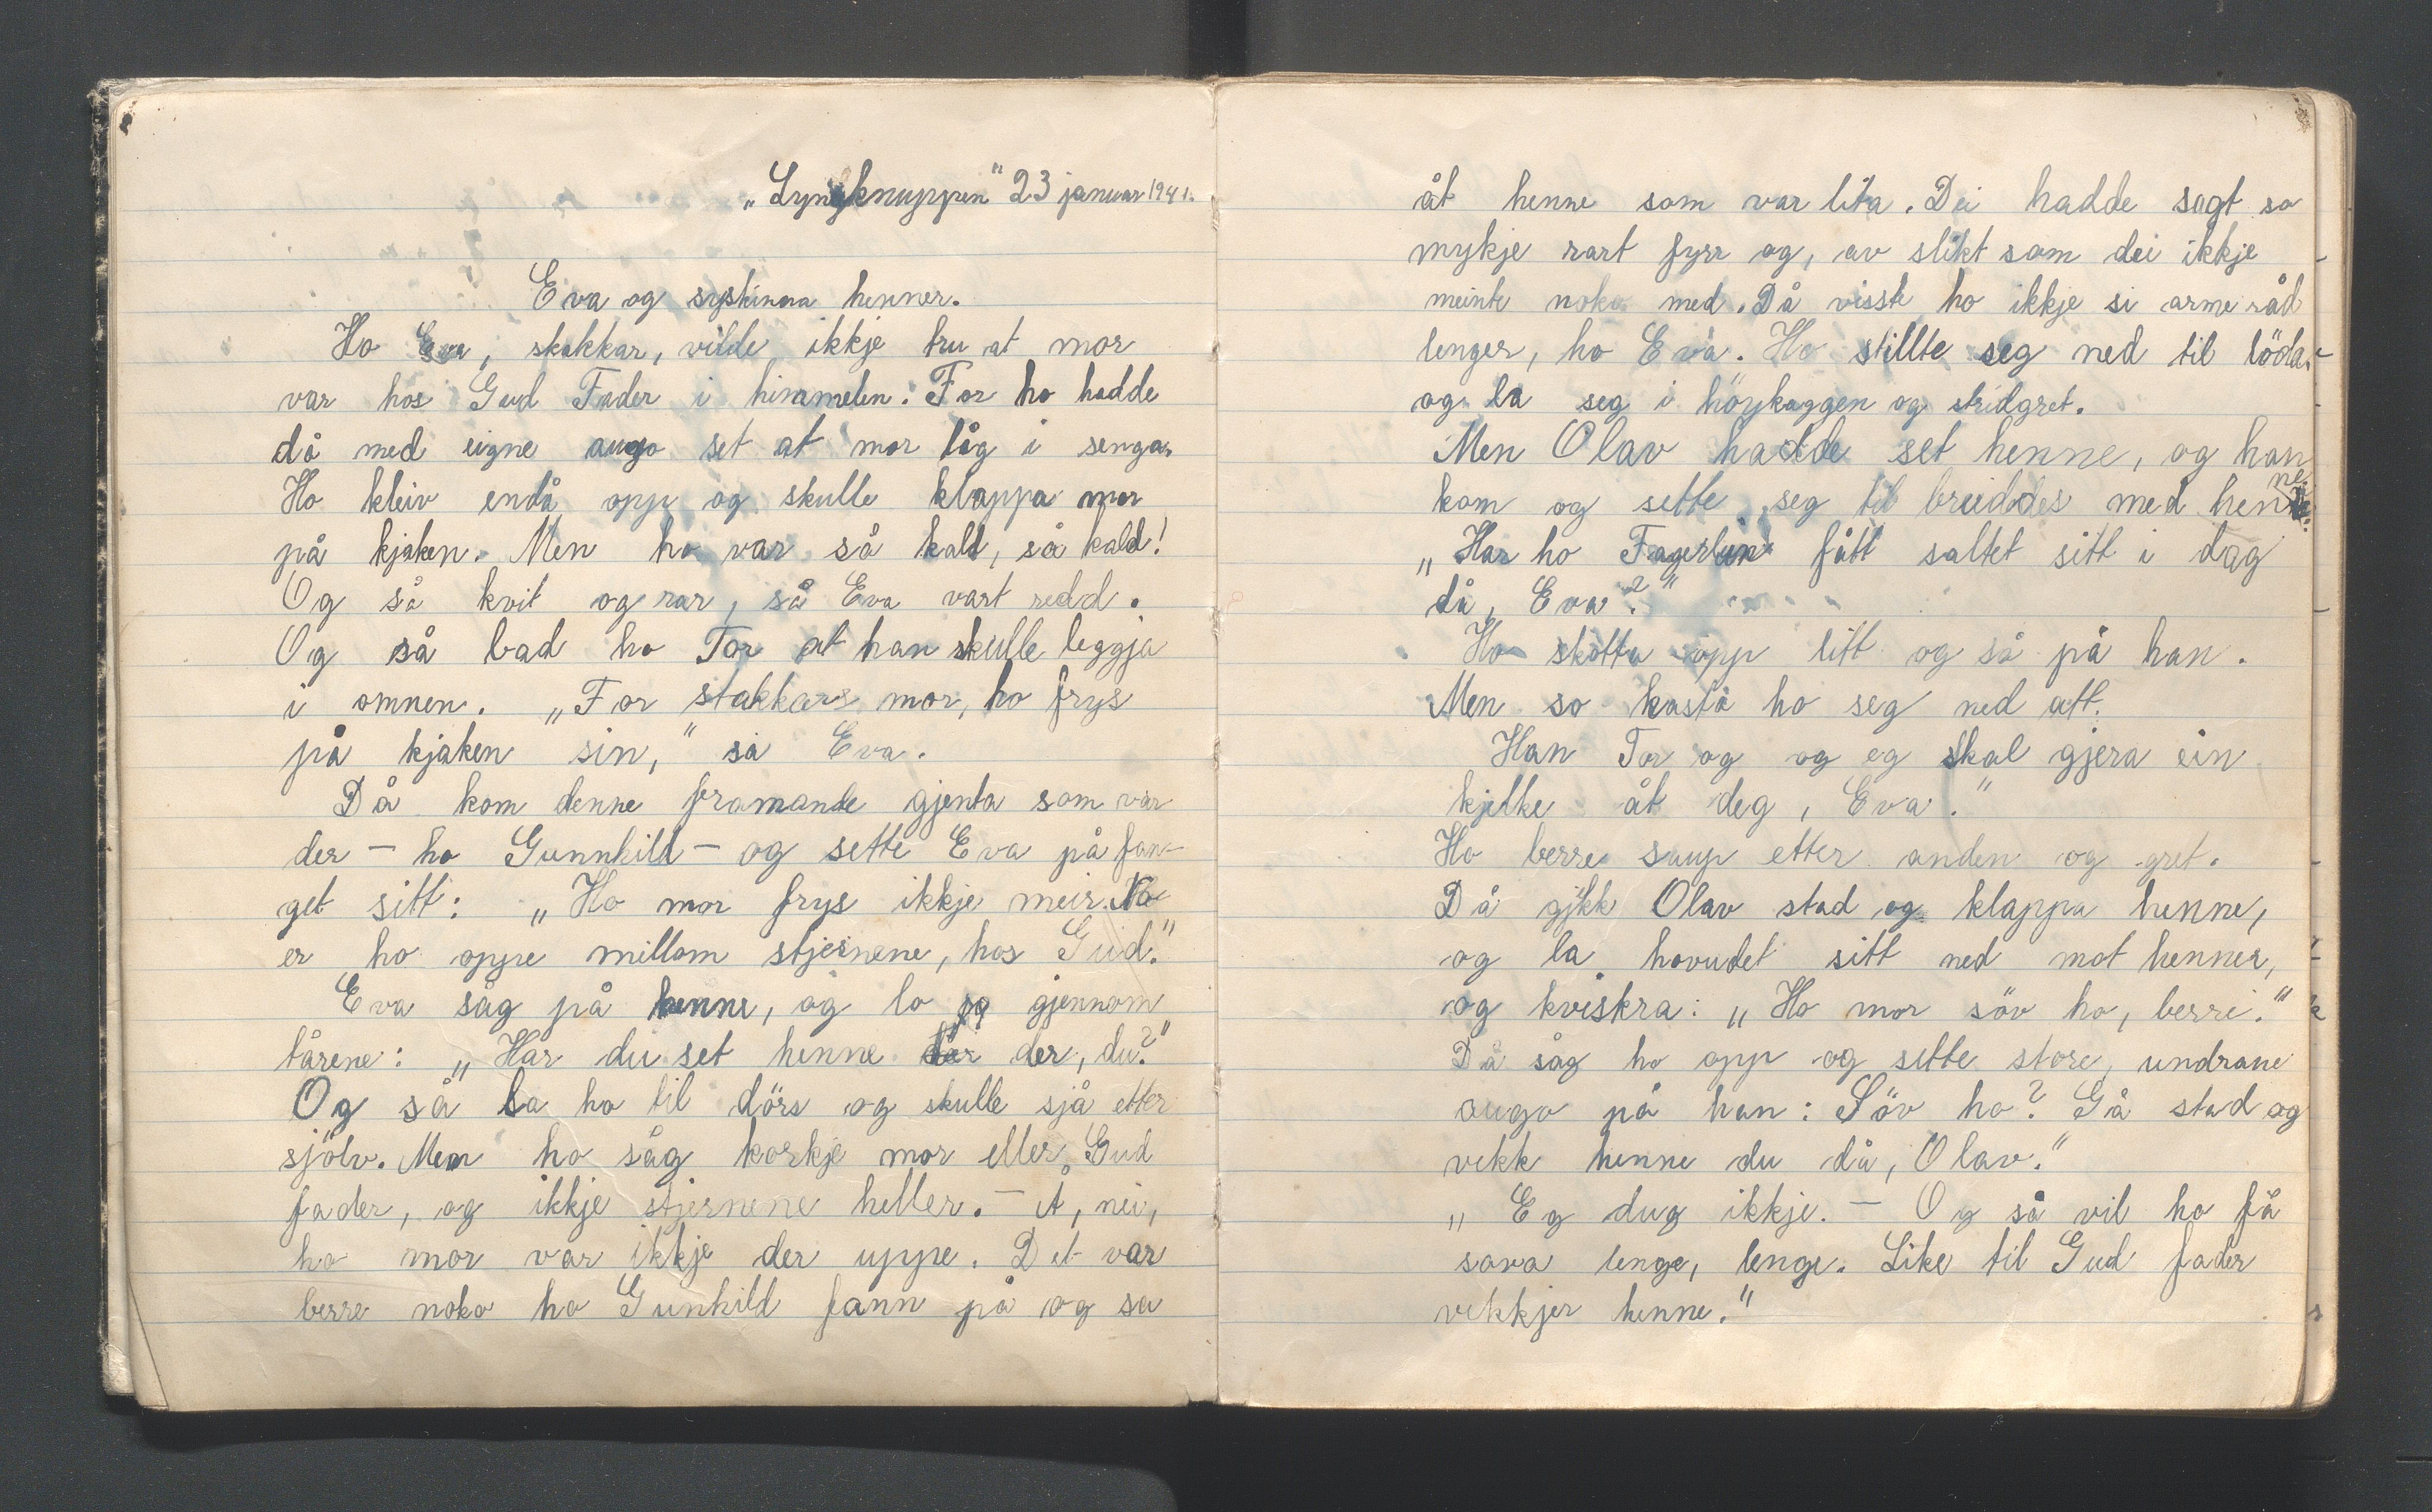 „Lyngknuppen" 23 januar 1941.
Eva og syskinna henner.
Ho Eva, stakkar, vilde ikkje tru at mor
var hos Gud Fader i himmelen. For ho hadde
då med eigne augo set at mor låg i senga.
Ho kleiv endå opp og skulle klappa mor
på kjaken. Men ho var så kald, så kald!
Og så kvit og rar, så Eva vart redd.
Og så bad ho Tor at han skulle leggja
i omnen. „For stakkars mor, ho frys
på kjaken sin," sa Eva.
Då kom denne framande gjenta som var
der – ho Gunnhild – og sette Eva på fan-
get sitt: „Ho mor frys ikkje meir. No
er ho oppe millom stjernene, hos Gud."
Eva såg på henne, og lo gjennom
tårene: „Har du set henne der, du?"
Og så la ho til dörs og skulle sjå etter
sjölv. Men ho såg korkje mor eller Gud
fader, og ikkje stjernene heller. – Å, nei,
ho mor var ikkje der uppe. Det var
berre noko ho Gunhild fann på og sa
åt henne som var lita. Dei hadde sagt so
mykje rart fyrr og, av slikt som dei ikkje
meinte noko med. Då visste ho ikkje si arme råd
lenger, ho Eva. Ho stillte seg ned til löda,
og la seg i höykaggen og stridgret.
Men Olav hadde set henne, og han
kom og sette seg til breiddes med henne.
„Har ho Fagerlin fått saltet sitt i dag
då, Eva?"
Ho skotta opp litt og så på han.
Men so kasta ho seg ned att.
Han Tor og og eg skal gjera ein
kjelke åt deg, Eva."
Ho berre saup etter anden og gret.
Då gjkk Olav stad og klappa henne,
og la hovudet sitt ned mot henner,
og kviskra: „Ho mor söv ho, berre."
Då såg ho opp og sette store, undrane
augo på han: Söv ho? Gå stad og
vekk henne du då, Olav."
„Eg dug ikkje. – Og så vil ho få
sova lenge, lenge. Like til Gud fader
vekkjer henne."